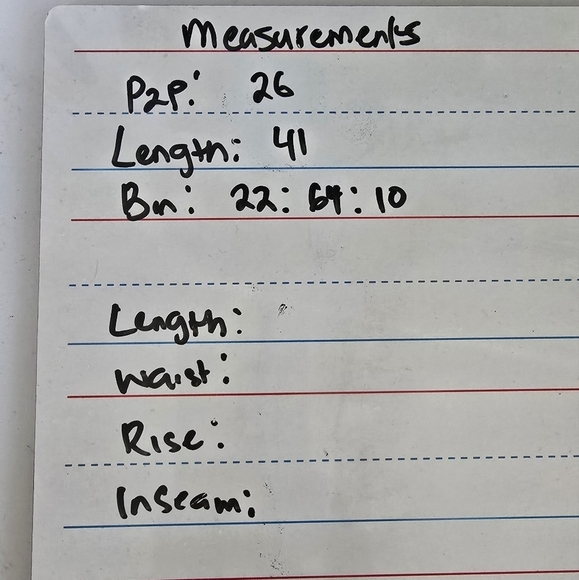 Measurements
P2P: 26
Length: 41
Bin: 22: 64: 10
Length:
Waist:
Rise:
Inseam: